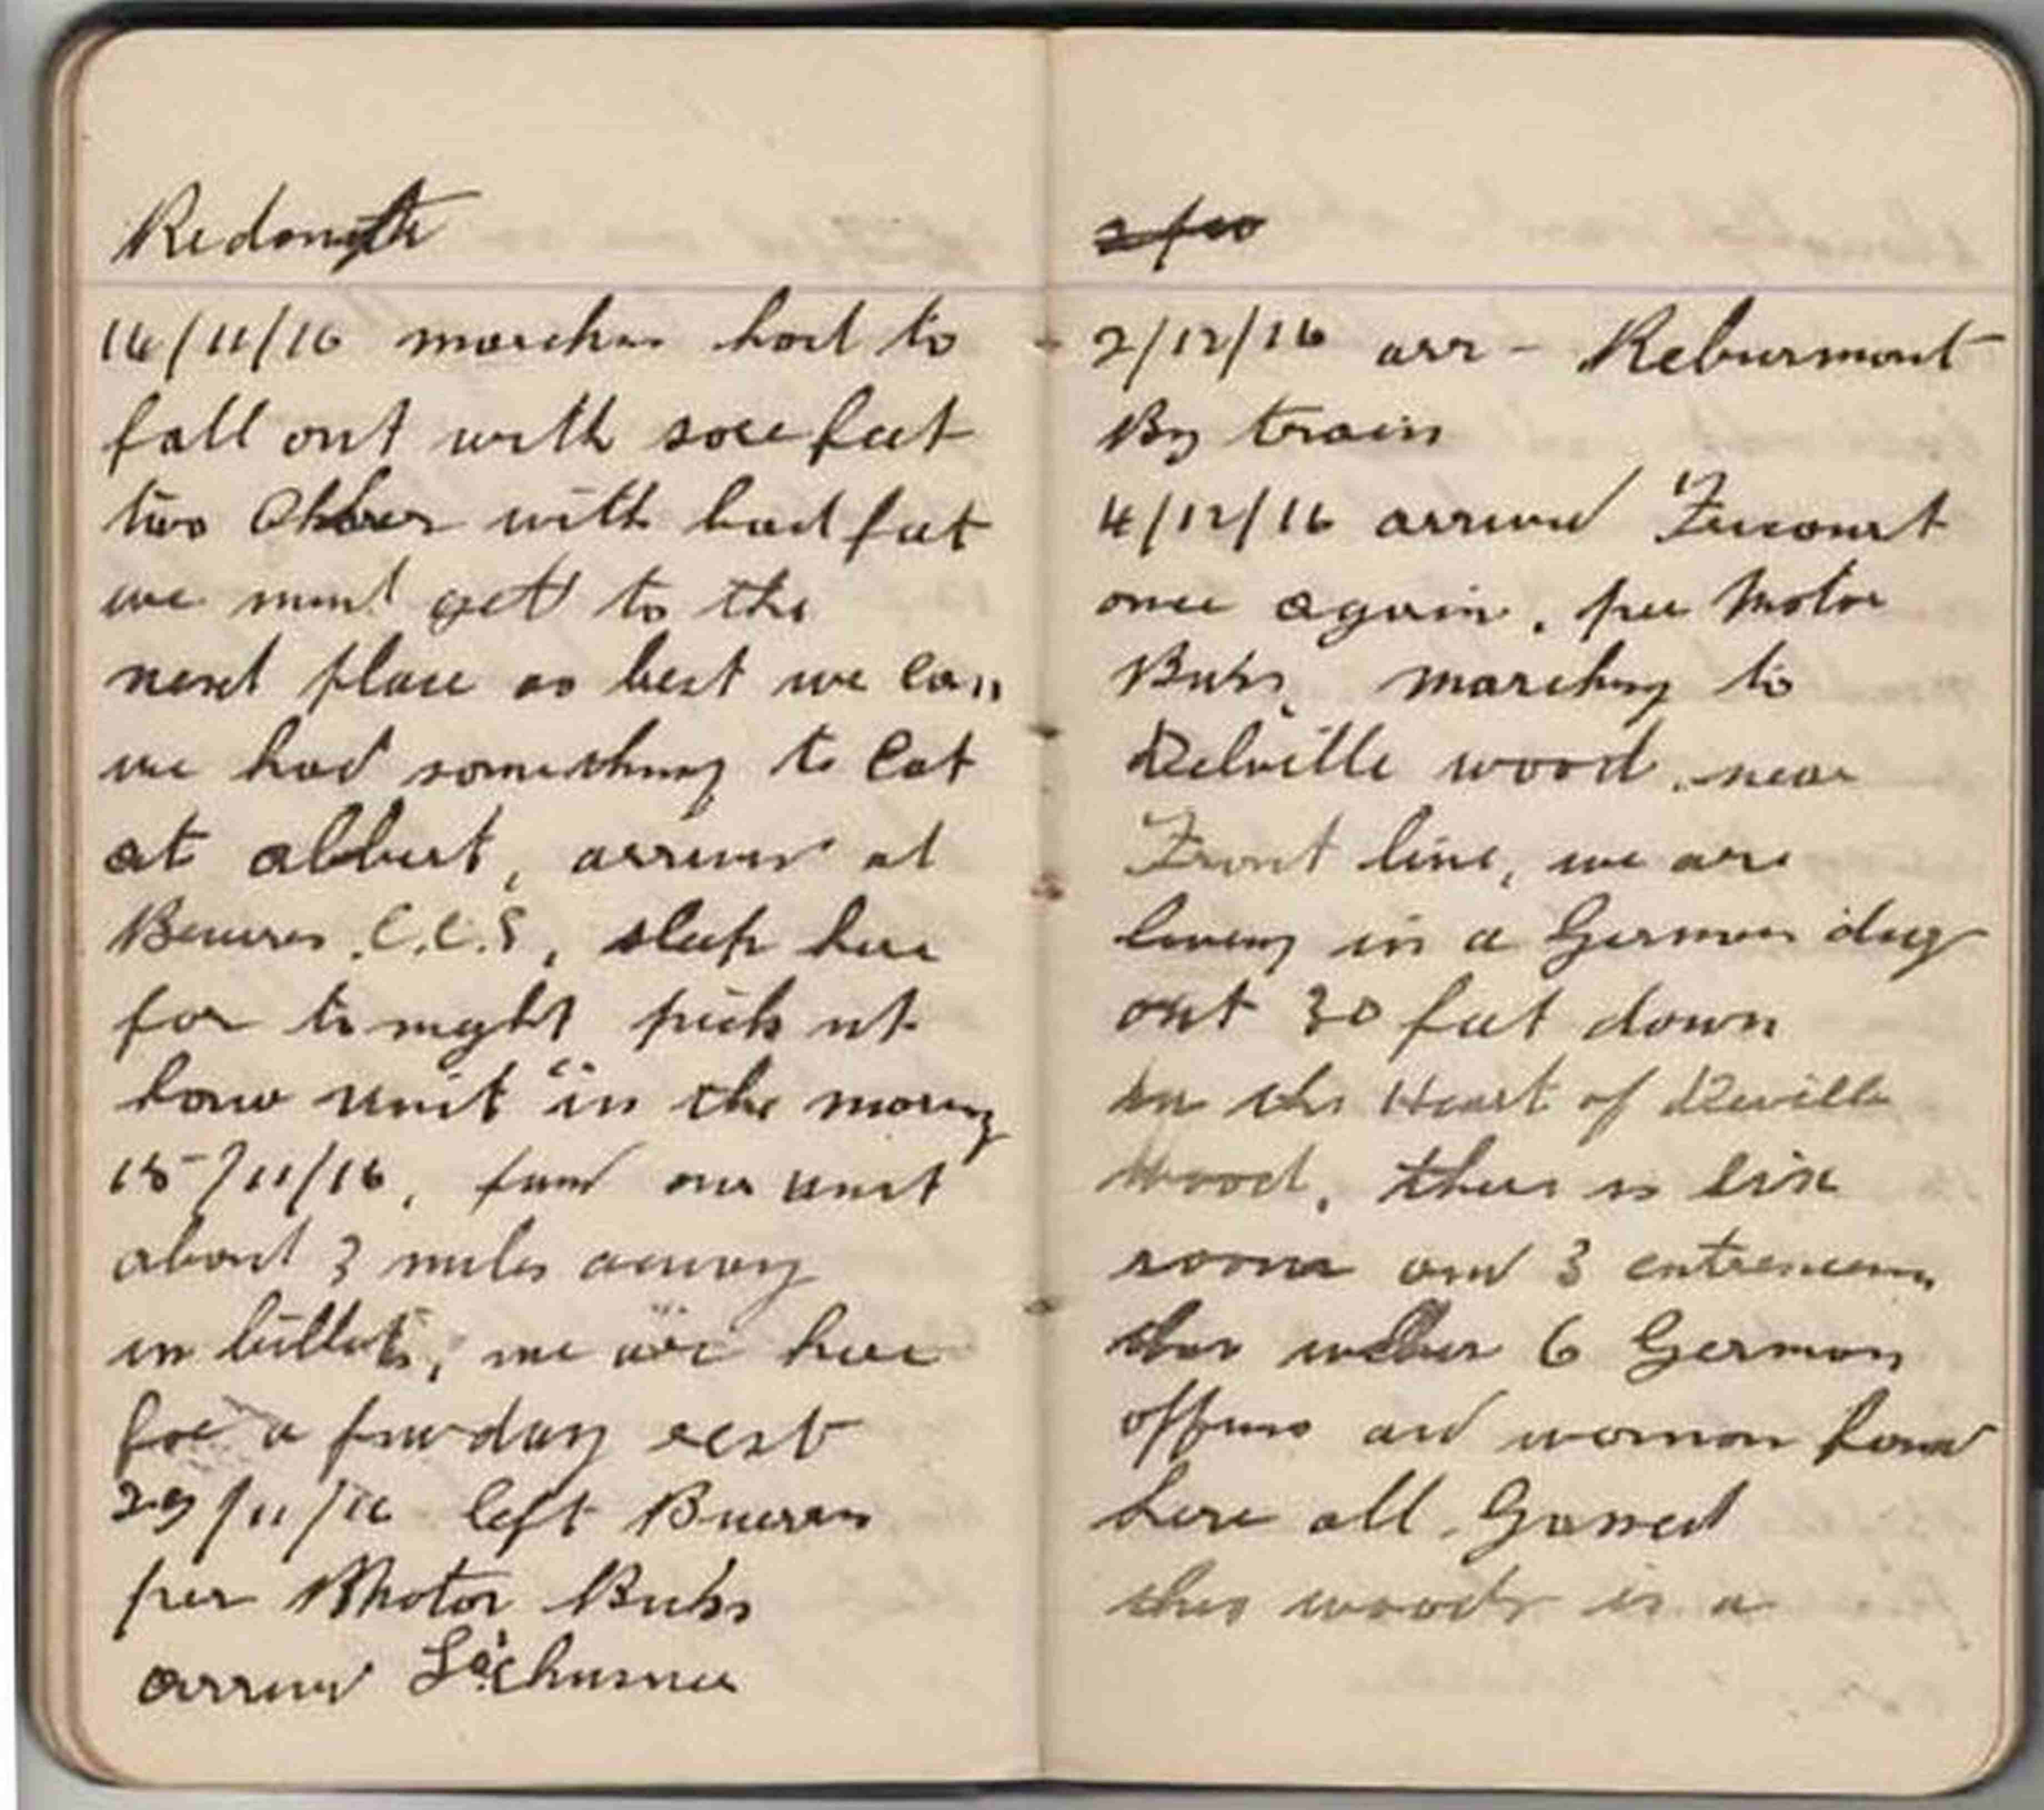 14/11/16 marches had to
fall out with sore feet
two Others with bad feet
we must get to the
next place as best we can
we had something to Eat
at albert, arriver at
C.C.S, sleep here
for to night pick ut
unit in the morng
15/11/16, our unit
about 3 miles away
in billets, we are here
for a few day rest
29/11/16 left
per Motor Buhs
arrived
2/12/16 arr - Reburmont
By train
4/12/16 arrived Fricourt
once again, per Motor
Buhs, marching to
Delville wood, near
Front line, we are
living in a German dug
out 30 feet down
in the Heart of Deville
Wood, there is
rooms and 3 entrences
6 German
officers and woman found
here all. Gassed
this woods is a